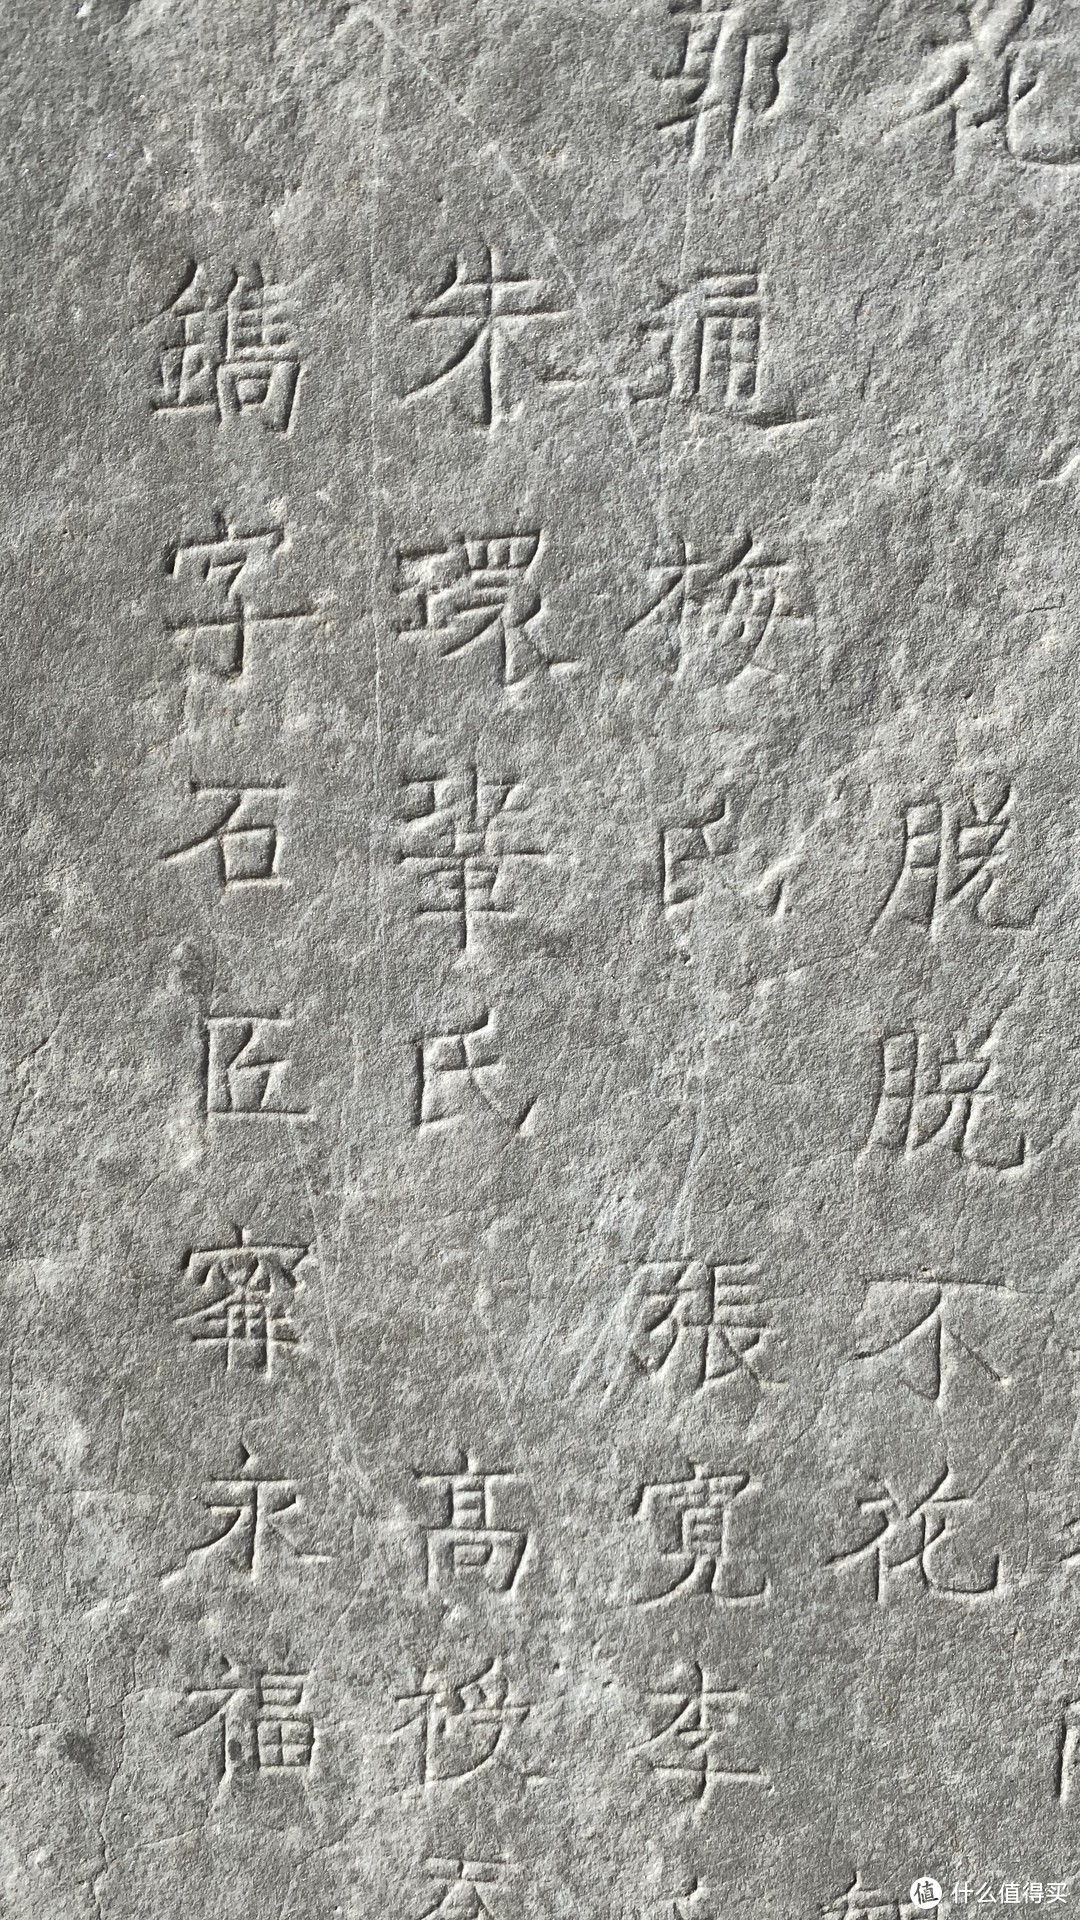 花 脱脱不花
通 梅氏 張寬 李
朱環 鞏氏 高授
鐫字石匠寗永福
值 什么值得买